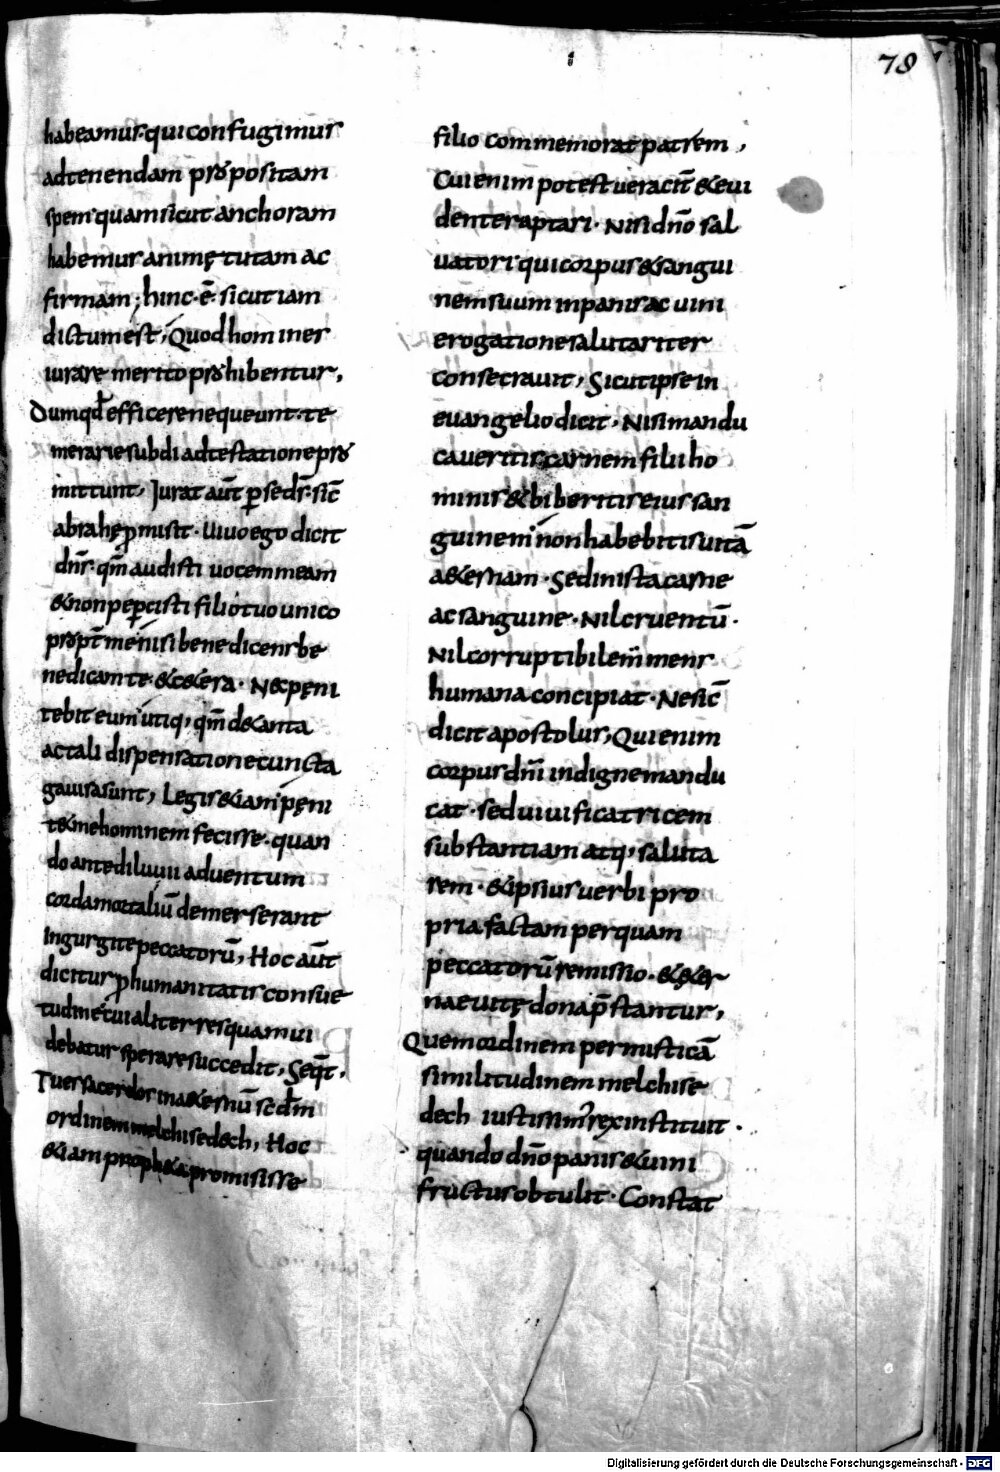 78
habeamus. qui confugimus
ad tenendam propositam
spem. quam sicut anchoram
habemus animę tutam ac
firmam; hinc. ē. sicut iam
dictum est; Quod homines
iurare merito prohibentur,
Dum qđ efficere nequeunt. te
merarie sub di adtestatione pro
mittunt, Jurat aūt per se dn̄s. sic̄
abrahę promisit. Uiuo ego dicit
dn̄s. qm̄ audisti uocem meam
& non pepercisti filio tuo unico
propt̄ me, nisi benedicens be
nedicam te. & c&era. Nec pęni
tebit eum utiq, qm̄ de tanta
ac tali dispensatione cuncta
gauisa sunt, Legis & iam pęni
t& me hominem fecisse. quan
do ante diluuii aduentum
corda mortaliū demerserant
In gurgite peccatorū, Hoc aūt
dicitur pro humanitatis consue
tudine, cui aliter res quam ui
debatur sperare succedit, Seqt̄.
Tu es sacerdos in a&ernū scd̄m
ordinem melchisedech, Hoc
& iam proph&a promisisse
filio commemorat patrem,
Cui enim potest ueracit̄ & eui
denter aptari. Nisi dn̄o sal
uatori qui corpus & sangui
nem suum in panis ac uini
erogatione salutariter
consecrauit, Sicut ipse in
euangelio dicit. Nisi mandu
caueritis carnem filii ho
minis & biberitis eius san
guinem non habebitis uitā
a&ernam. Sed in ista carne
ac sanguine. Nil cruentū.
Nil corruptibilem mens
humana concipiat. Ne sic̄
dicit apostolus, Qui enim
corpus dn̄i indigne mandu
cat. sed uiuificatricem
substantiam atq, saluta
rem. & ipsius uerbi pro
pria factam per quam
peccatorū remissio. & ęter
nae uitę dona p̄stantur,
Quem ordinem per misticā
similitudinem melchise
dech iustissimus rex instituit.
quando dn̄o panis & uini
fructus obtulit. Constat
Digitalisierung gefördert durch die Deutsche Forschungsgemeinschaft - DFG